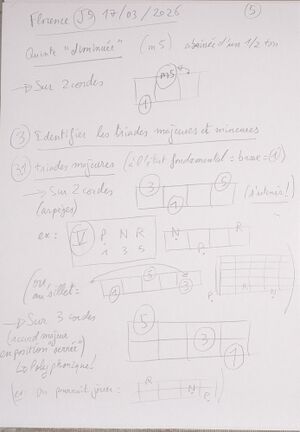 Florence J9 17/03/2026 5
Quinte "diminuée" (m5) abaissée d'un 1/2 ton
→ Sur 2 cordes
m5
1
3 Identifier les triades majeures et mineures
31 triades majeures (à l'état fondamental = basse = 1)
→ Sur 2 cordes
(arpèges)
3 5
1
ex: V P N R
1 3 5
N R
P
au sillet:
5
1 3
P R N
→ Sur 3 cordes
(accord majeur
en position "serrée")
↳ Polyphonique!
5
3
1
(ex: on pourrait jouer:
R
N
P